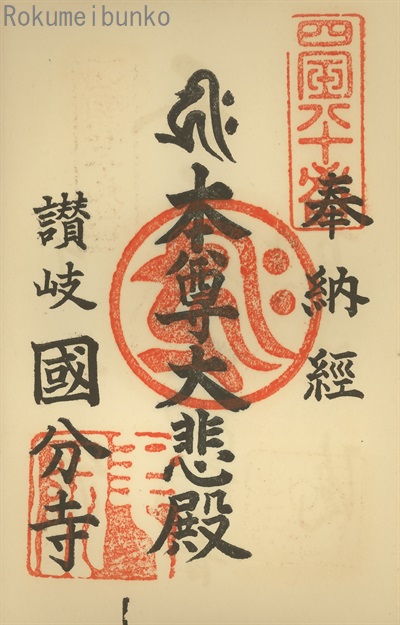 Rokumeibunko
四國八十番
奉納經
本尊大悲殿
讃岐國分寺